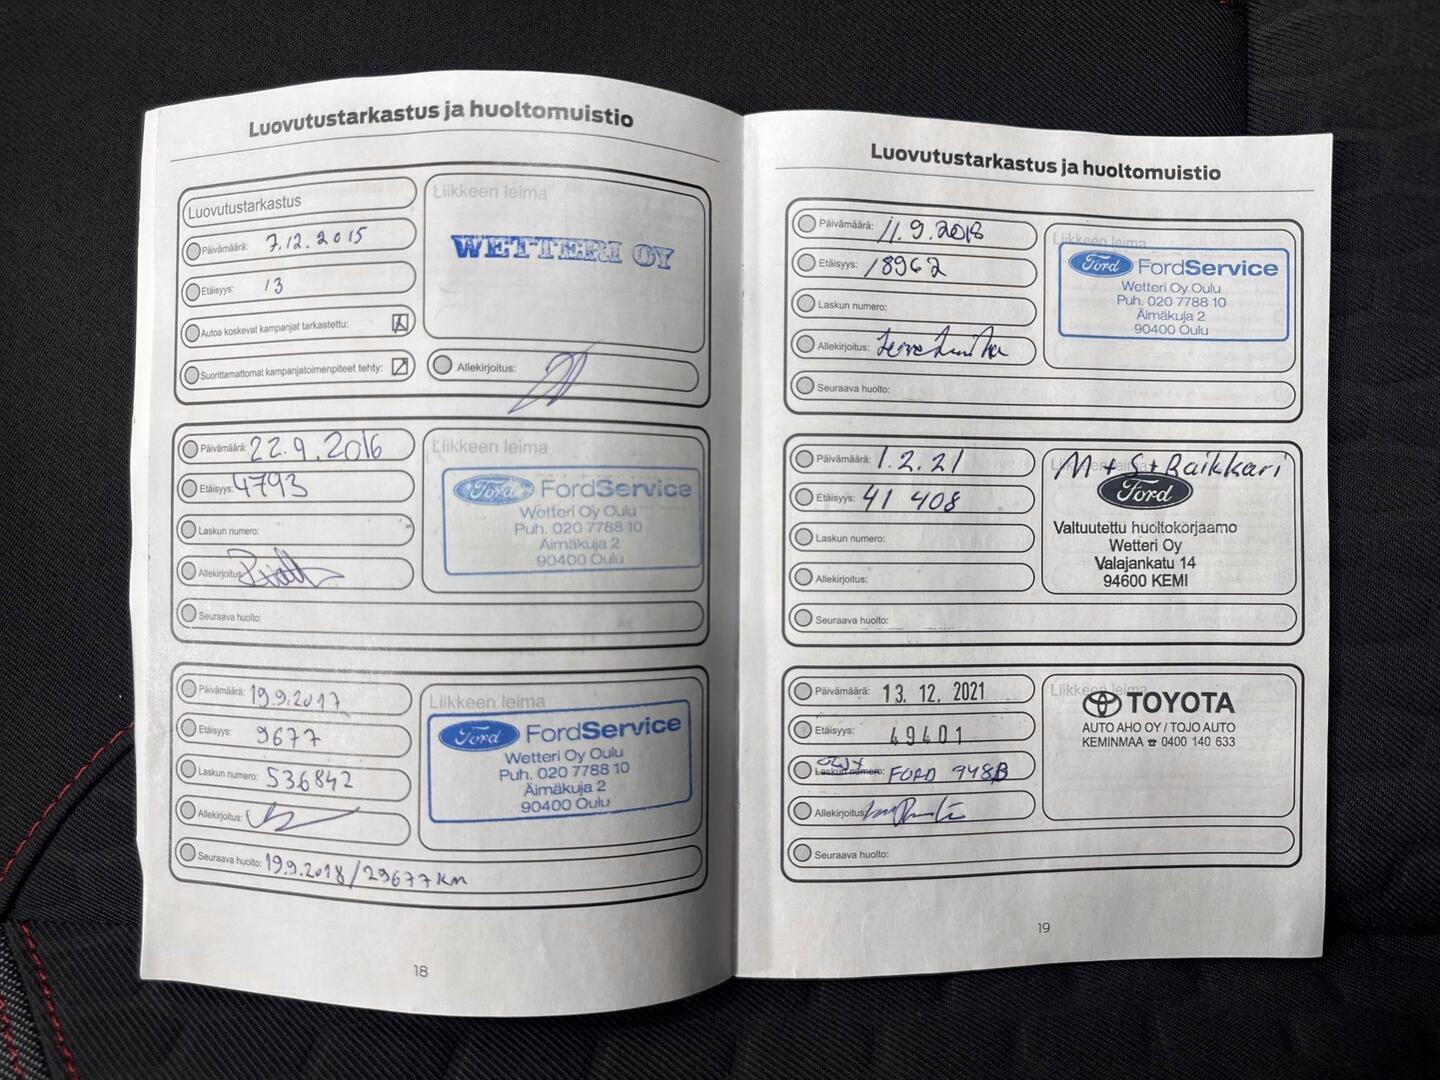 Luovutustarkastus ja huoltomuistio
Luovutustarkastus
Päivämäärä: 7.12.2015
Etäisyys: 13
Autoa koskevat kampanjat tarkastettu:
Suorittamattomat kampanjatoimenpiteet tehty:
Liikkeen leima
WETTERI OY
Allekirjoitus:
Päivämäärä: 22.9.2016
Etäisyys: 4793
Laskun numero:
Allekirjoitus:
Seuraava huolto:
Liikkeen leima
Ford FordService
Wetteri Oy Oulu
Puh. 020 7788 10
Äimäkuja 2
90400 Oulu
Päivämäärä: 19.9.2017
Etäisyys: 9677
Laskun numero: 536842
Allekirjoitus:
Seuraava huolto: 19.9.2018/29677km
Liikkeen leima
Ford FordService
Wetteri Oy Oulu
Puh. 020 7788 10
Äimäkuja 2
90400 Oulu
18
Luovutustarkastus ja huoltomuistio
Päivämäärä: 11.9.2018
Etäisyys: 18962
Laskun numero:
Allekirjoitus:
Seuraava huolto:
Liikkeen leima
Ford FordService
Wetteri Oy Oulu
Puh. 020 7788 10
Äimäkuja 2
90400 Oulu
Päivämäärä: 1.2.21
Etäisyys: 41 408
Laskun numero:
Allekirjoitus:
Seuraava huolto:
Liikkeen leima
M + S + Raikkari
Ford
Valtuutettu huoltokorjaamo
Wetteri Oy
Valajankatu 14
94600 KEMI
Päivämäärä: 13. 12. 2021
Etäisyys: 49401
Laskun numero: FORD 948B
Allekirjoitus:
Seuraava huolto:
Liikkeen leima
TOYOTA
AUTO AHO OY / TOJO AUTO
KEMINMAA ☎ 0400 140 633
19